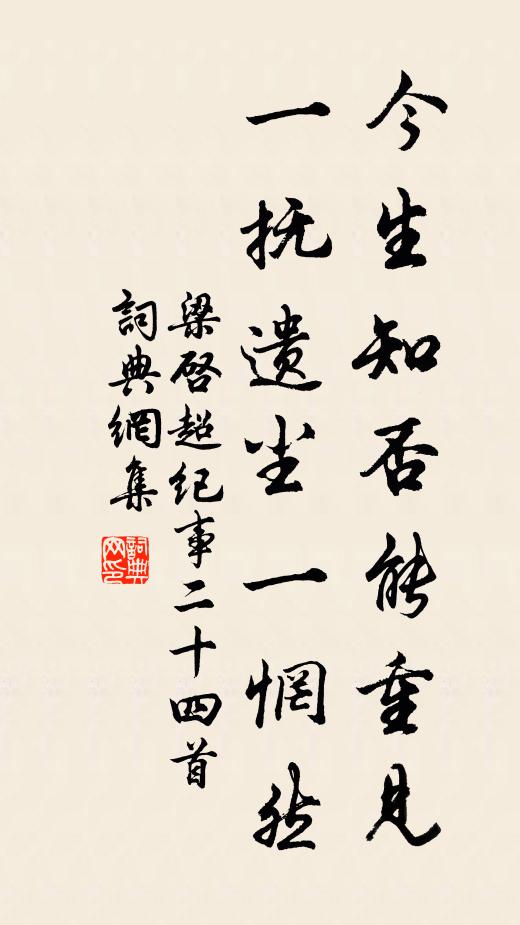 今生知否能重见
一抚遗尘一惘然
梁啓超纪事二十四首
詞典網集
詞典网印